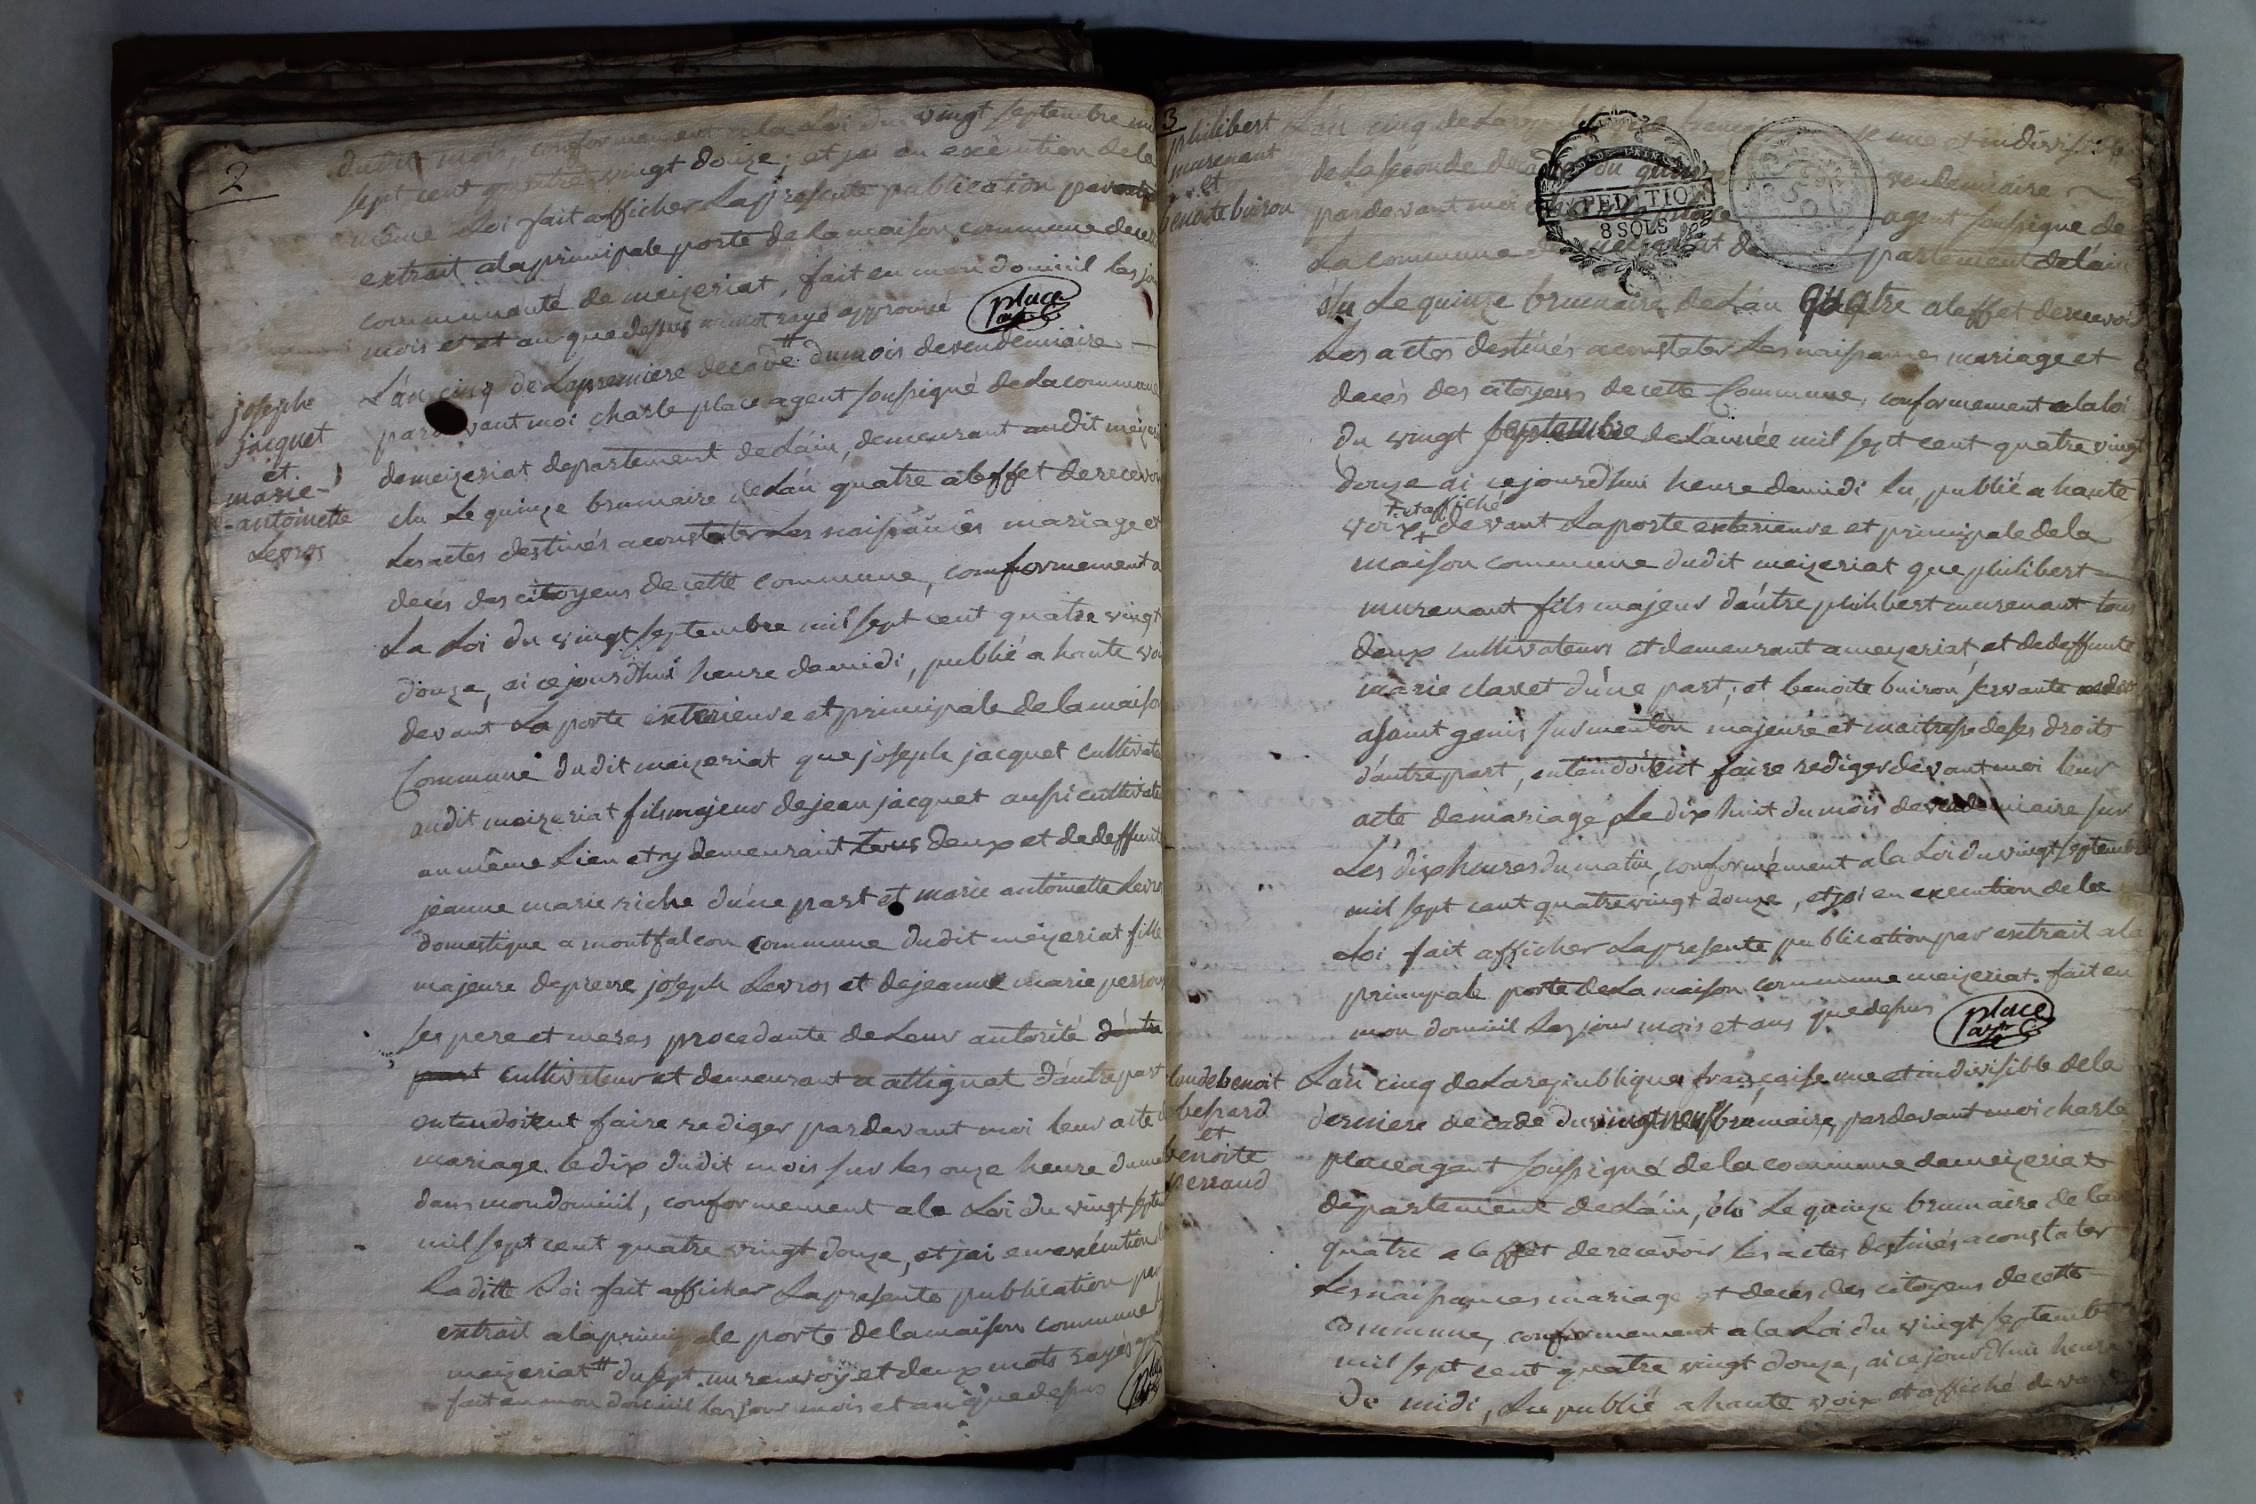 2
dudit mois, conformement a la Loi du vingt septembre mil
sept cent quatre vingt douze; et jai en exécution de la
même Loi fait afficher La presente publication par
extrait a la principale porte de La maison commune de cette
communauté de meizeriat, fait en mon domicil les jour
mois et an que dessus un mot rayé approuvé
place
agt
joseph
jacquet
et
marie-
antoinette
Levros
L'an cinq de La premiere decade ## du mois de vendemiaire
pardevant moi charle place agent soussigné de La commune
de meizeriat departement de L'ain, demeurant audit meizeriat
élu Le quinze brumaire de L'an quatre a leffet de recevoir
Les actes destinés a constater Les naissances mariage et
decés des citoyens de cette commune, conformement a
La Loi du vingt septembre mil sept cent quatre vingt
douze, ai ce jourdhui heure de midi, publié a haute voix
devant La porte exterieure et principale de la maison
Commune dudit meizeriat que joseph jacquet cultivateur
audit meizeriat fils majeur de jean jacquet aussi cultivateur
au même Lieu et y demeurant tous deux et de deffunte
jeanne marie riche d'une part et marie antoinette Levros
domestique a montfalcon commune dudit meizeriat fille
majeure de pierre joseph Levros et de jeanne marie perrou
ses pere et meres procedante de Leur autorité d'autre
part cultivateur et demeurant a attignat d'autre part
entendoitent faire rediger pardevant moi leur acte de
mariage le dix dudit mois sur les onze heure du matin
dans mon domicil, conformement a la Loi du vingt septembre
mil sept cent quatre vingt douze, et jai en exécution de
La ditte Loi fait afficher La presente publication par
extrait a la principale porte de la maison commune
meizeriat ## du sept. un renvoy et deux mots rayés
fait en mon domicil les jour mois et an que dessus
3
philibert
murenant
et
benoite buiron
EXPEDITION
8 SOLS
L'an cinq de La republique francaise une et indivisible
de La seconde decade du quinze vendemiaire
pardevant moi place agent soussigné de
La commune de meizeriat departement de L'ain
élu Le quinze brumaire de L'an quatre a leffet de recevoir
Les actes destinés a constater Les naissances mariage et
decès des citoyens de cette Commune, conformement a la loi
du vingt septembre de L'année mil sept cent quatre vingt
douze ai ce jourdhui heure de midi lu, publié a haute
+ et affiché
voix + devant La porte exterieure et principale de la
maison commune dudit meizeriat que philibert
murenant fils majeur d'autre philibert murenant tous
deux cultivateurs et demeurant a meyzeriat, et de deffunte
marie clavet d'une part, et benoite buiron servante
a saint genis sur menton majeure et maitresse de ses droits
d'autre part, entendoitent faire rediger devant moi leur
acte de mariage Le dix huit du mois de vendemiaire sur
Les dix heures du matin, conformément a la Loi du vingt septembre
mil sept cent quatre vingt douze, et jai en execution de la
Loi fait afficher La presente publication par extrait a la
principale porte de La maison commune meizeriat. fait en
mon domicil Les jour mois et ans que dessus
place
agt
benoit
bessard
et
benoite
perraud
L'an cinq de La republique française une et indivisible de la
derniere decade du vingt neuf brumaire, pardevant moi charle
place agent soussigné de la commune de meizeriat
département de L'ain, élu Le quinze brumaire de lan
quatre a leffet de recevoir les actes destinés a constater
Les naissances mariage et decés des citoyens de cette
commune, conformement a la Loi du vingt septembre
mil sept cent quatre vingt douze, ai ce jourdhui heure
de midi, Lu publié a haute voix et affiché devant